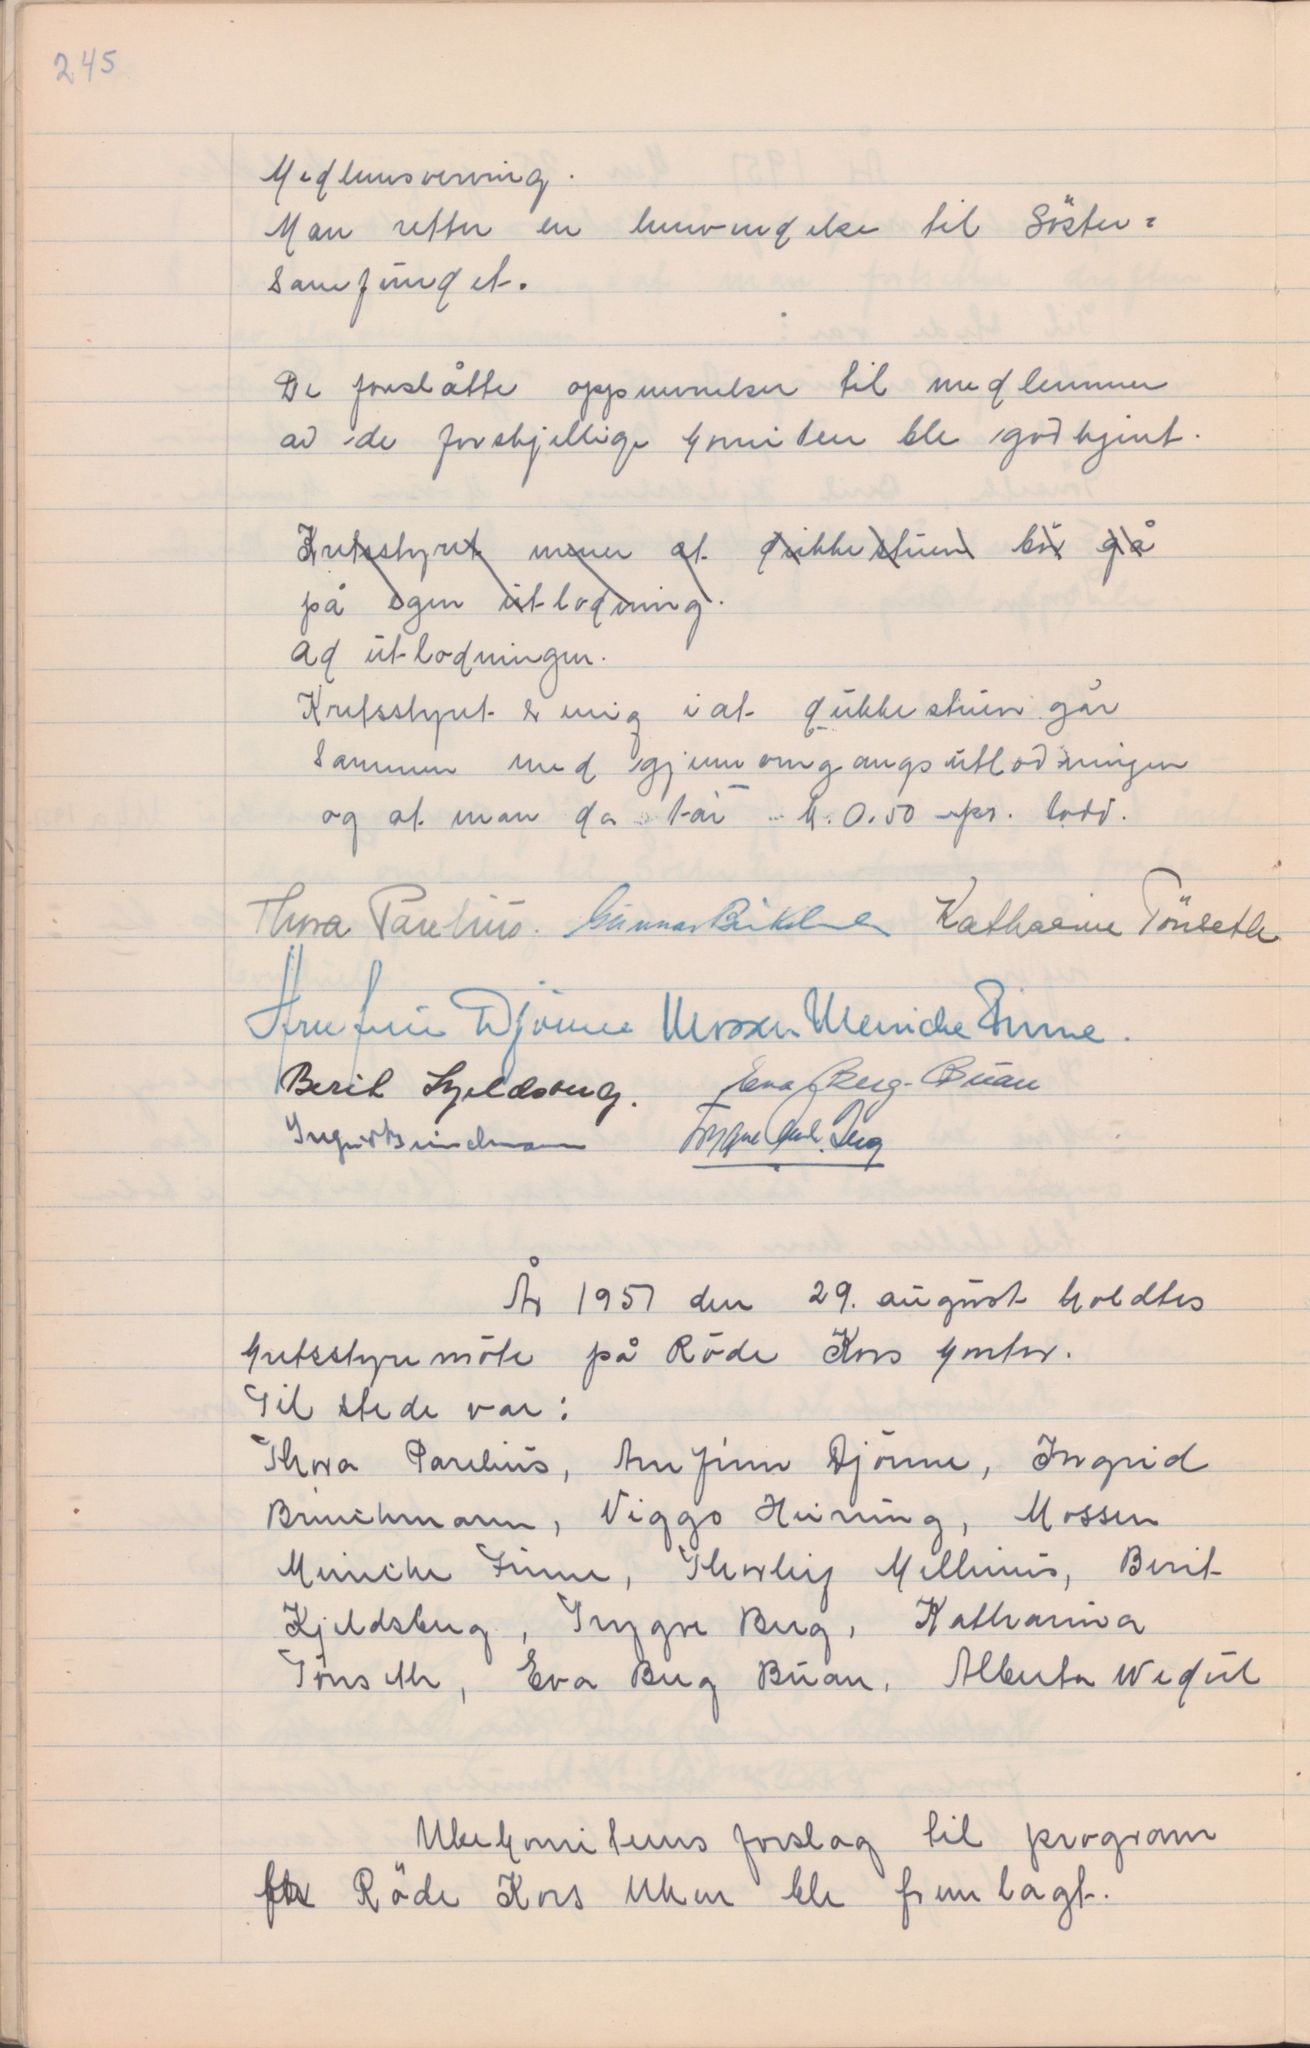 245
Medlemsverving.
Man retter en henvendelse til Söster=
samfundet.
De foreslåtte oppnevnelser til medlemmer
av de forskjellige komiteer ble godkjent.
Kretsstyret mener at dukkestuen bör gå
på egen utlodning.
Ad utlodningen.
Kretsstyret er enig i at dukkestuen går
sammen med gjennomgangsutlodningen
og at man da tar k. 0.50 pr. lodd.
Thora Parelius. Gunnar Katharina Tönseth
Arnfinn Djönne Mossen Meincke Finne.
Berit Kjeldsberg. Eva Berg-Buan
Ingrid Brinchmann Trygve Berg
År 1951 den 29. august holdtes
kretsstyremöte på Röde Kors kontor.
Til stede var:
Thora Parelius, Arnfinn Djönne, Ingrid
Brinchmann, Viggo Heining, Mossen
Meincke Finne, Thorleif Mellinius, Berit
Kjeldsberg, Trygve Berg, Katharina
Tönseth, Eva Berg Buan, Alberta Wedul
Ukekomiteens forslag til program
for Röde Kors Uken ble fremlagt.